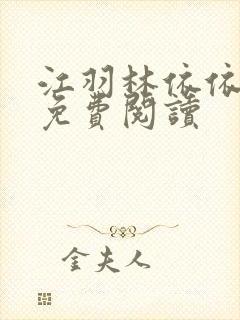 江羽林依依
免費閱讀
金夫人